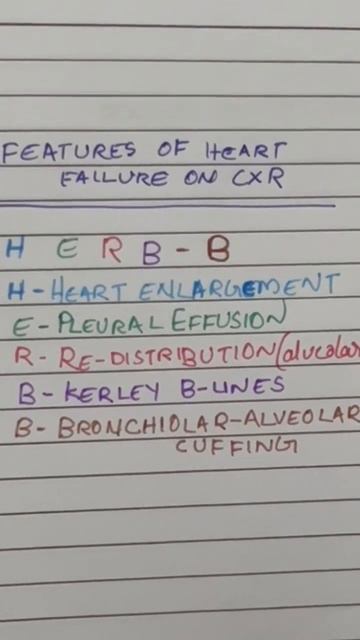 FEATURES OF HEART
FAILURE ON CXR
H E R B - B
H - HEART ENLARGEMENT
E - PLEURAL EFFUSION
R - RE-DISTRIBUTION (alveolar
B - KERLEY B-LINES
B - BRONCHIOLAR-ALVEOLAR
CUFFING